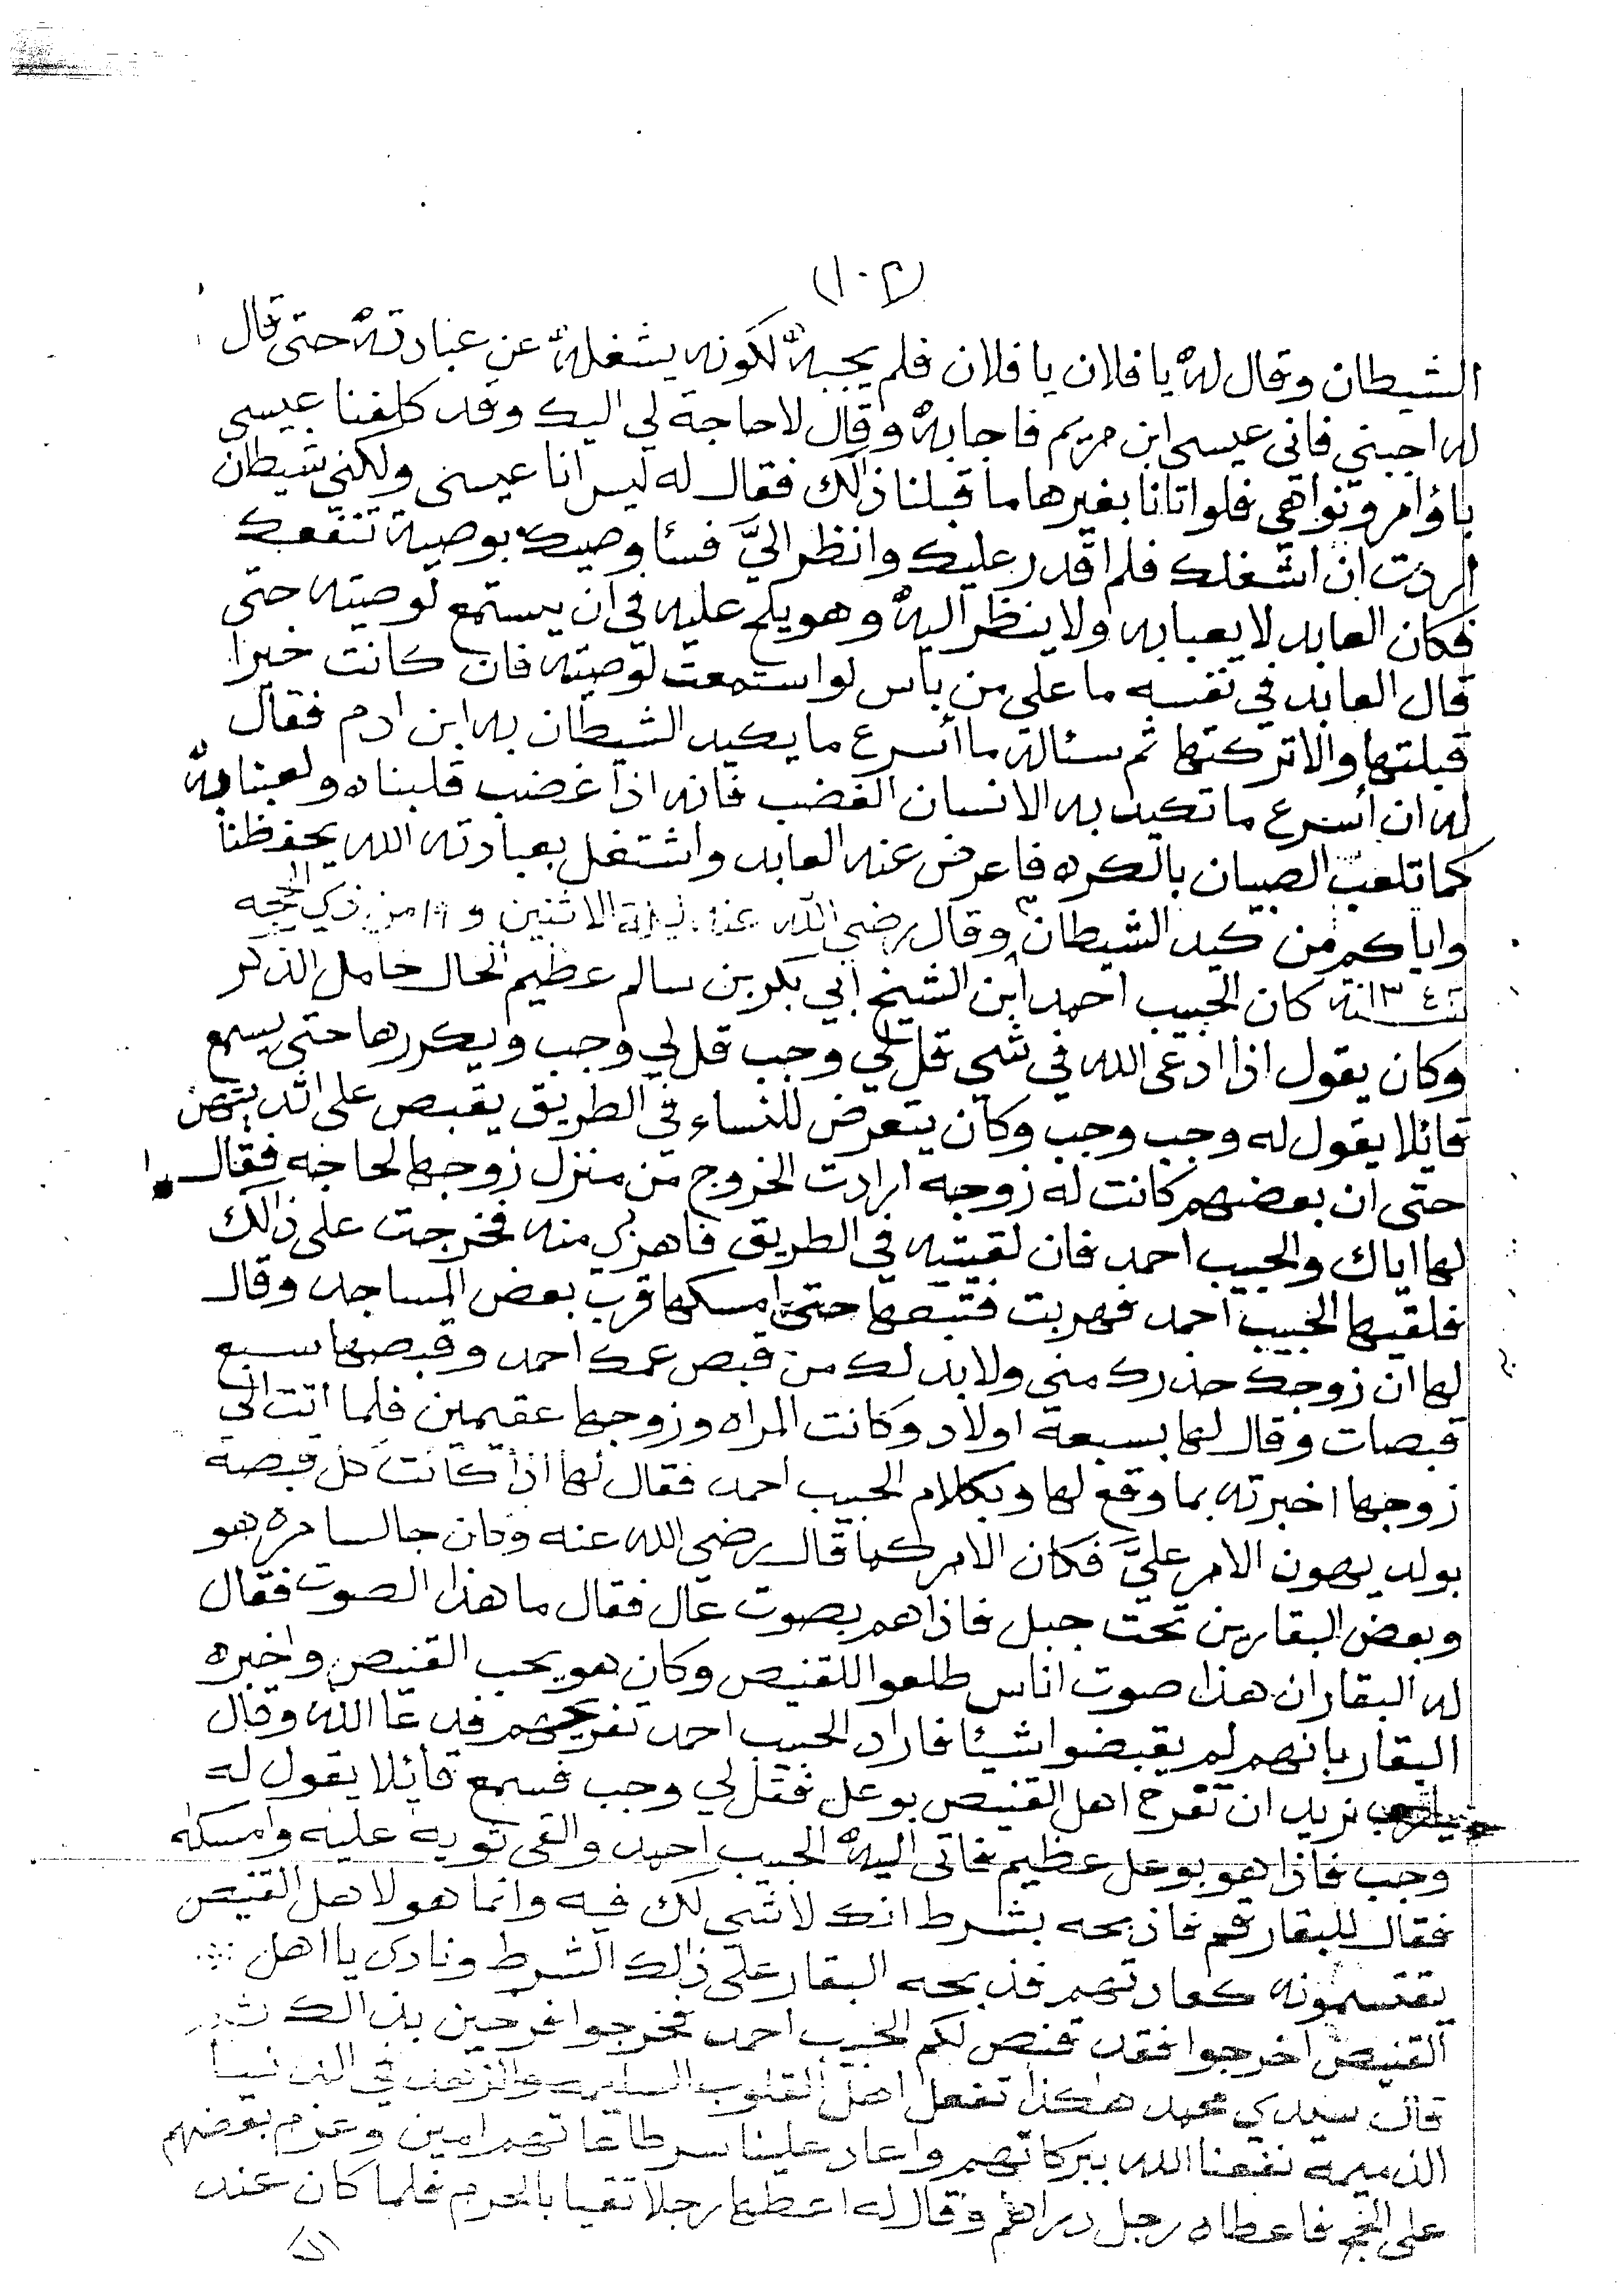 (١٠٢)
الشيطان وقال له يا فلان يا فلان فلم يجبه لكونه يشغله عن عبادته حتى قال
له اجبني فاني عيسى ابن مريم فاجابه وقال لا حاجة لي اليك وقد كلفنا عيسى
باؤامر ونواهي فلو اتانا بغيرها ما قبلنا ذالك فقال له ليس انا عيسى ولكني شيطان
اردت ان اشغلك فلم اقدر عليك وانظر اليَّ فسأوصيك بوصية تنفعك
فكان العابد لا يعبا به ولا ينظر اليه وهو يلح عليه في ان يستمع لوصيته حتى
قال العابد في نفسه ما علي من باس لو استمعت لوصيته فان كانت خيرا
قبلتها والا تركتها ثم سئاله ما أسرع ما يكيد الشيطان به ابن ادم فقال
له ان أسرع ما تكيد به الانسان الغضب فانه اذا غضب قلبناه ولعبنا به
كما تلعب الصبيان بالكره فاعرض عنه العابد واشتغل بعبادته الله يحفظنا
واياكم من كيد الشيطان وقال رضي الله عنه ليلة الاثنين و ١٩ من ذي الحجه
سنة ١٣٤٥ كان الحبيب احمد ابن الشيخ ابي بكر بن سالم عظيم الحال خامل الذكر
وكان يقول اذا ادعى الله في شي قل لي وجب قل لي وجب ويكررها حتى يسمع
قائلا يقول له وجب وجب وكان يتعرض للنساء في الطريق يقبص على ثديتهن
حتى ان بعضهم كانت له زوجه ارادت الخروج من منزل زوجها لحاجه فقال
لها اياك والحبيب احمد فان لقيتيه في الطريق فاهربي منه فخرجت على ذالك
فلقيها الحبيب احمد فهربت فتبعها حتى امسكها قرب بعض المساجد وقال
لها ان زوجك حذرك مني ولا بد لك من قبص عمك احمد وقبصها سبع
قبصات وقال لها بسبعة اولاد وكانت المراه وزوجها عقيمين فلما اتت الى
زوجها اخبرته بما وقع لها وبكلام الحبيب احمد فقال لها اذا كانت كل قبصة
بولد يهون الامر عليَّ فكان الامر كما قال رضي الله عنه وكان جالسا مره هو
وبعض البقارين تحت جبل فاذا هم بصوت عال فقال ما هذا الصوت فقال
له البقار ان هذا صوت اناس طلعوا للقنيص وكان هو يحب القنيص واخبره
البقار بانهم لم يقبضوا شيئا فاراد الحبيب احمد تفريحهم فدعا الله وقال
يارب نريد ان تفرح اهل القنيص بوعل فقل لي وجب فسمع قائلا يقول له
وجب فاذا هو بوعل عظيم فاتى اليه الحبيب احمد والقى ثوبه عليه وامسكه
فقال للبقار قم فاذبحه بشرط انك لا شي لك فيه وانما هو لاهل القنيص
يقتسمونه كعادتهم فذبحه البقار على ذالك الشرط ونادى يا اهل
القنيص اخرجوا فقد قنص لكم الحبيب احمد فخرجوا فرحين بذالك ثم
قال سيدي محمد هكذا تفعل اهل القلوب السليمه والزهد في الدنيا
الذميمه نفعنا الله ببركاتهم واعاد علينا سر طاعاتهم امين وعزم بعضهم
على الحج فاعطاه رجل دراهم وقال له اعطها رجلا تقيا بالحرم فلما كان عند